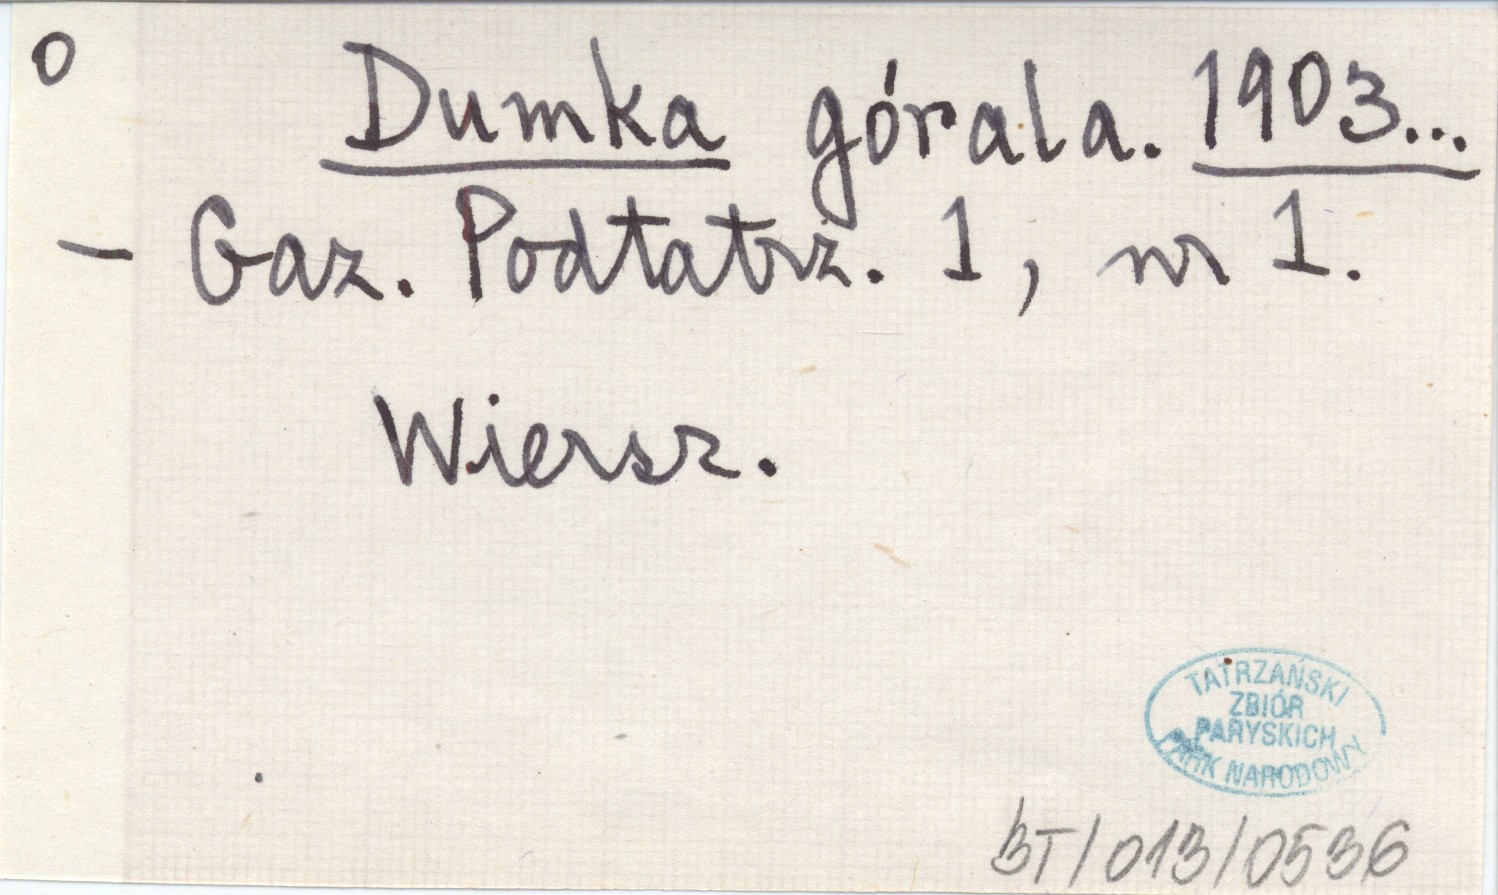 o
Dumka górala. 1903...
— Gaz. Podtatrz. 1, nr 1.
Wiersz.
TATRZAŃSKI
ZBIÓR
PARYSKICH
PARK NARODOWY
BT/013/0536